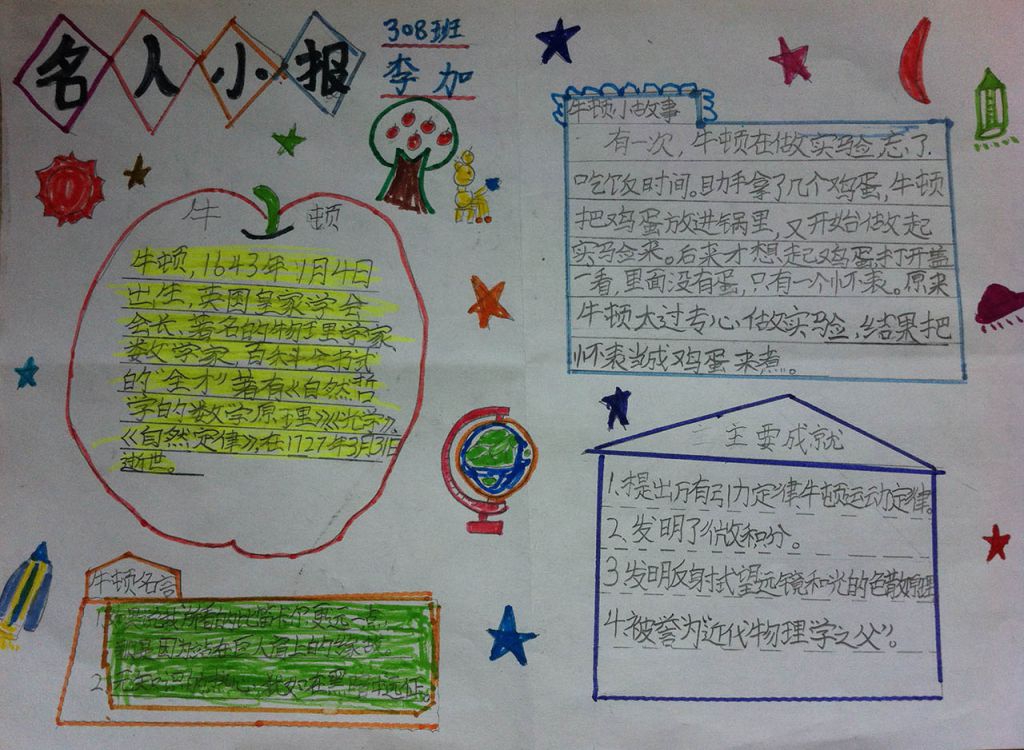 名人小报
308班
李加
牛顿
牛顿,1643年1月4日
出生,英国皇家学会
会长,著名的物理学家,
数学家,百科全书式
的“全才”著有《自然哲
学的数学原理》《光学》、
《自然定律》,在1727年3月31日
逝世。
牛顿名言
1.
是因为站在巨人肩上的缘故。
2.
牛顿小故事
有一次,牛顿在做实验,忘了
吃饭时间。助手拿了几个鸡蛋,牛顿
把鸡蛋放进锅里,又开始做起
实验来。后来才想起鸡蛋,打开盖
一看,里面没有蛋,只有一个怀表。原来
牛顿太过专心做实验,结果把
怀表当成鸡蛋来煮。
主要成就
1.提出万有引力定律,牛顿运动定律。
2.发明了微积分。
3.发明反射式望远镜和光的色散原理
4.被誉为“近代物理学之父”。